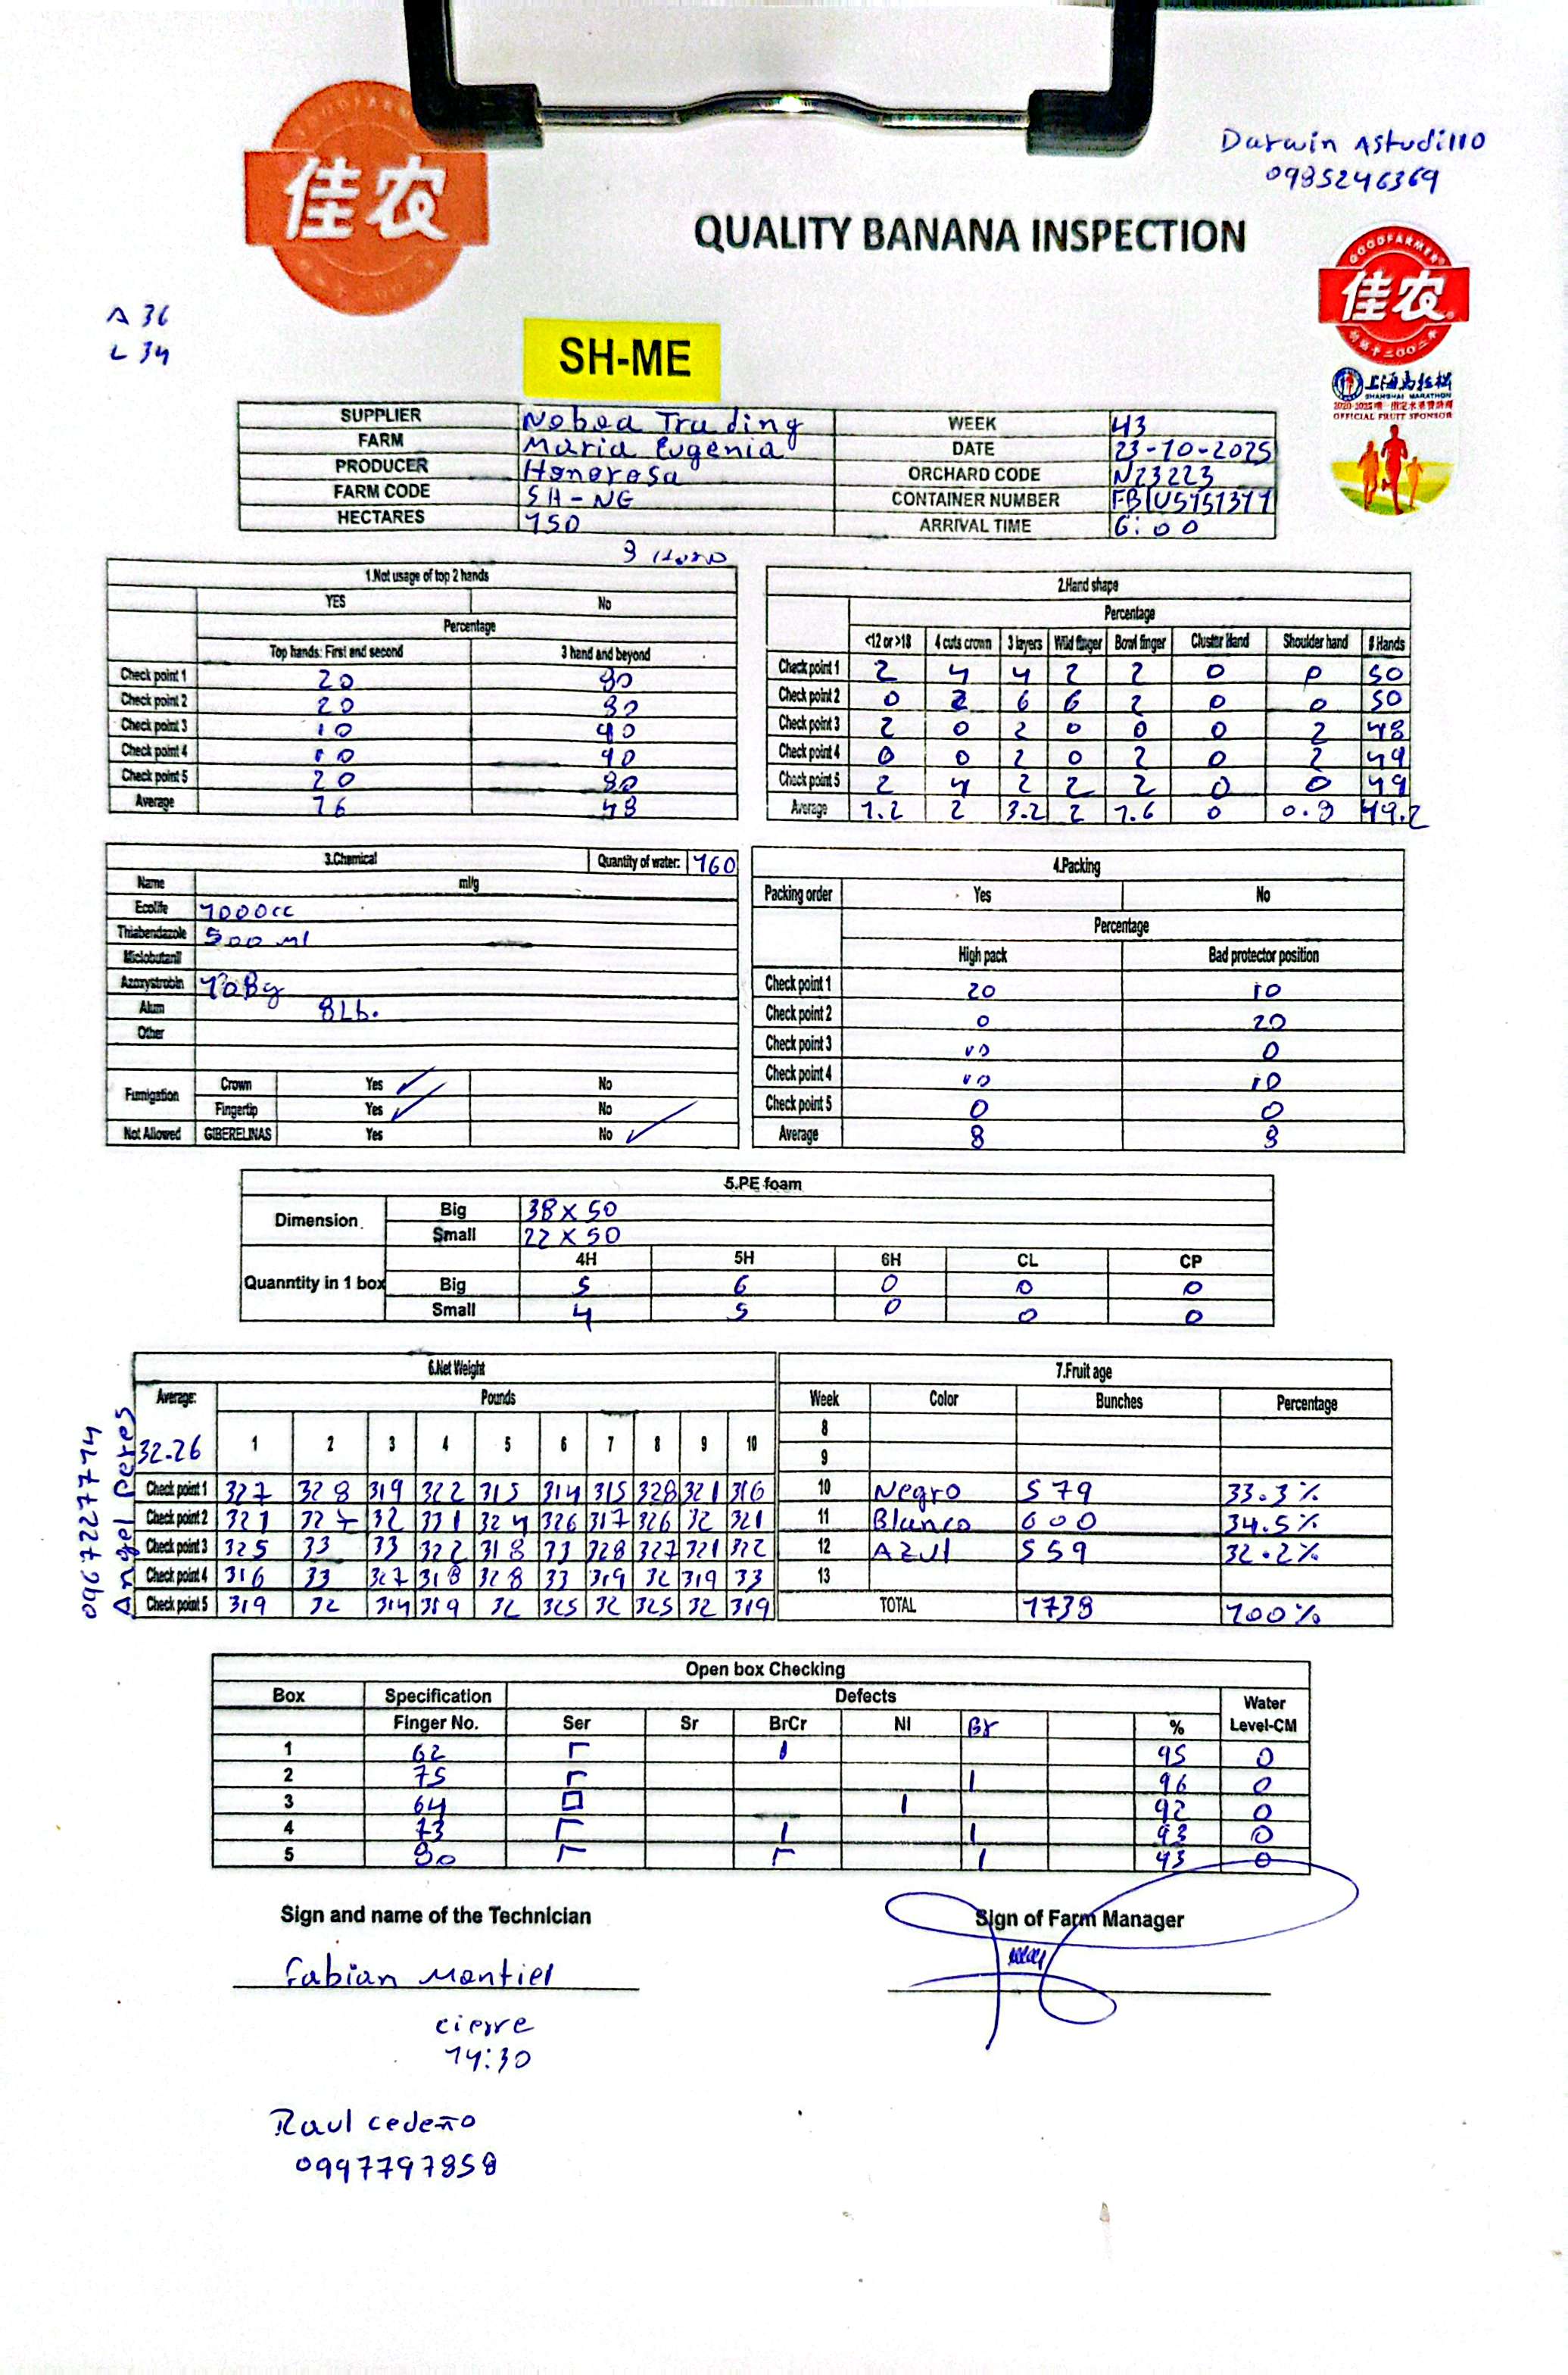 Darwin Astudillo
0985246369
佳农
QUALITY BANANA INSPECTION
GOODFARMER
佳农
A 36
L 34
SH-ME
上海马拉松
SHANGHAI MARATHON
OFFICIAL FRUIT SPONSOR
SUPPLIER Noboa Trading WEEK 43
FARM Maria Eugenia DATE 23-10-2025
PRODUCER Honorosa ORCHARD CODE N23223
FARM CODE SH-NG CONTAINER NUMBER FBIU5151371
HECTARES 150 ARRIVAL TIME 6:00
1.Not usage of top 2 hands
YES No
Percentage
Top hands: First and second 3 hand and beyond
Check point 1 20 80
Check point 2 20 80
Check point 3 10 90
Check point 4 10 90
Check point 5 20 80
Average 16 48
2.Hand shape
Percentage
<12 or >18 4 cuts crown 3 layers Wild finger Bowl finger Cluster Hand Shoulder hand # Hands
Check point 1 2 4 4 2 2 0 0 50
Check point 2 0 2 6 6 2 0 0 50
Check point 3 2 0 2 0 0 0 2 48
Check point 4 0 0 2 0 2 0 2 49
Check point 5 2 4 2 2 2 0 0 49
Average 1.2 2 3.2 2 1.6 0 0.8 49.2
3.Chemical Quantity of water: 160
Name ml/g
Ecolife 1000cc
Thiabendazole 500 ml
Miclobutanil
Azoxystrobin
Alum 8Lb.
Other
Fumigation Crown Yes ✓ No
Fingertip Yes ✓ No
Not Allowed GIBERELINAS Yes No ✓
4.Packing
Packing order Yes No
Percentage
High pack Bad protector position
Check point 1 20 10
Check point 2 0 20
Check point 3 10 0
Check point 4 10 10
Check point 5 0 0
Average 8 8
5.PE foam
Dimension. Big 38 x 50
Small 22 x 50
4H 5H 6H CL CP
Quanntity in 1 box Big 5 6 0 0 0
Small 4 5 0 0 0
0967227714
Angel Peres
6.Net Weight
Average: Pounds
32.26 1 2 3 4 5 6 7 8 9 10
Check point 1 327 328 319 322 315 314 315 328 321 316
Check point 2 321 327 32 331 324 326 317 326 32 321
Check point 3 325 33 33 322 318 33 328 327 321 322
Check point 4 316 33 327 318 328 33 319 32 319 33
Check point 5 319 32 314 319 32 325 32 325 32 319
7.Fruit age
Week Color Bunches Percentage
8
9
10 Negro 579 33.3%
11 Blanco 600 34.5%
12 AZUl 559 32.2%
13
TOTAL 1738 100%
Open box Checking
Box Specification Defects Water
Finger No. Ser Sr BrCr NI Br % Level-CM
1 62 95 0
2 75 96 0
3 64 92 0
4 73 93 0
5 80 93 0
Sign and name of the Technician
Sign of Farm Manager
Fabian Montiel
cierre
14:30
Raul cedeño
0997797858